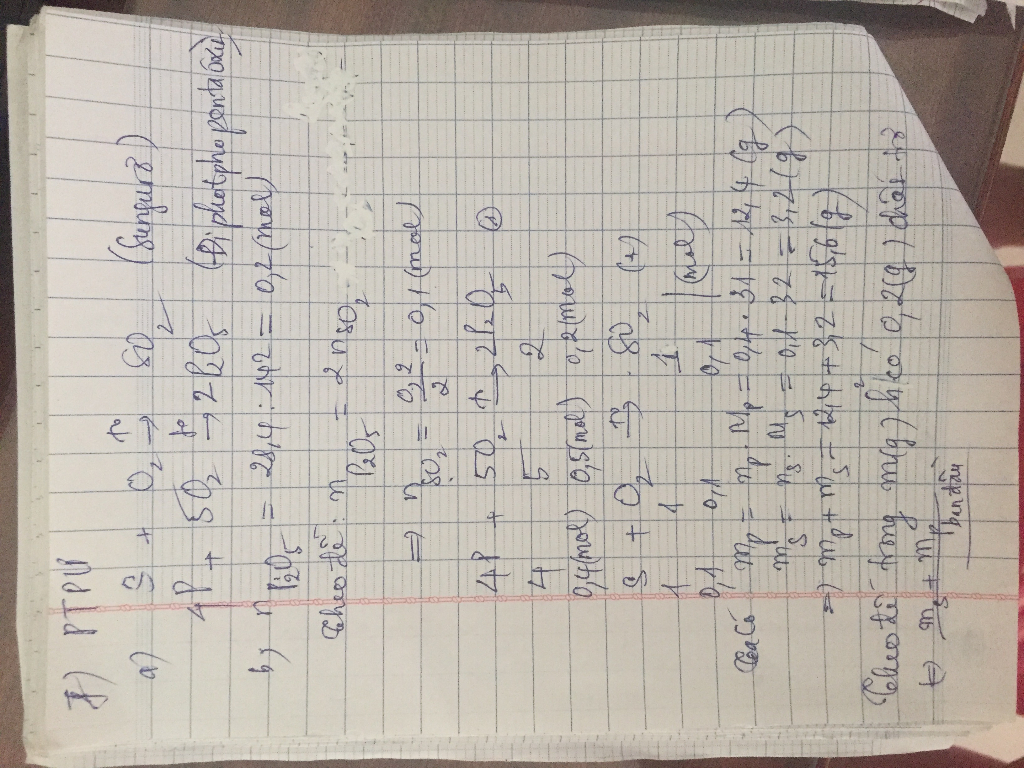 PTPƯ
a) S + O2 t° → SO2 (Sunfurơ)
4P + 5O2 t° → 2P2O5 (Điphotpho pentaôxit)
b, n P2O5 = 28,4 : 142 = 0,2 (mol)
Theo đề: n P2O5 = 2 n SO2
=> n SO2 = 0,2/2 = 0,1 (mol)
4P + 5O2 t° → 2P2O5
4 5 2
0,4 (mol) 0,5 (mol) 0,2 (mol)
S + O2 t° → SO2
1 1 1
0,1 0,1 0,1 (mol)
Ta có mP = nP . MP = 0,4 . 31 = 12,4 (g)
mS = nS . MS = 0,1 . 32 = 3,2 (g)
=> mP + mS = 12,4 + 3,2 = 15,6 (g)
Theo đề trong m(g) h² có 0,2 (g) chất trơ
mS + mP ban đầu